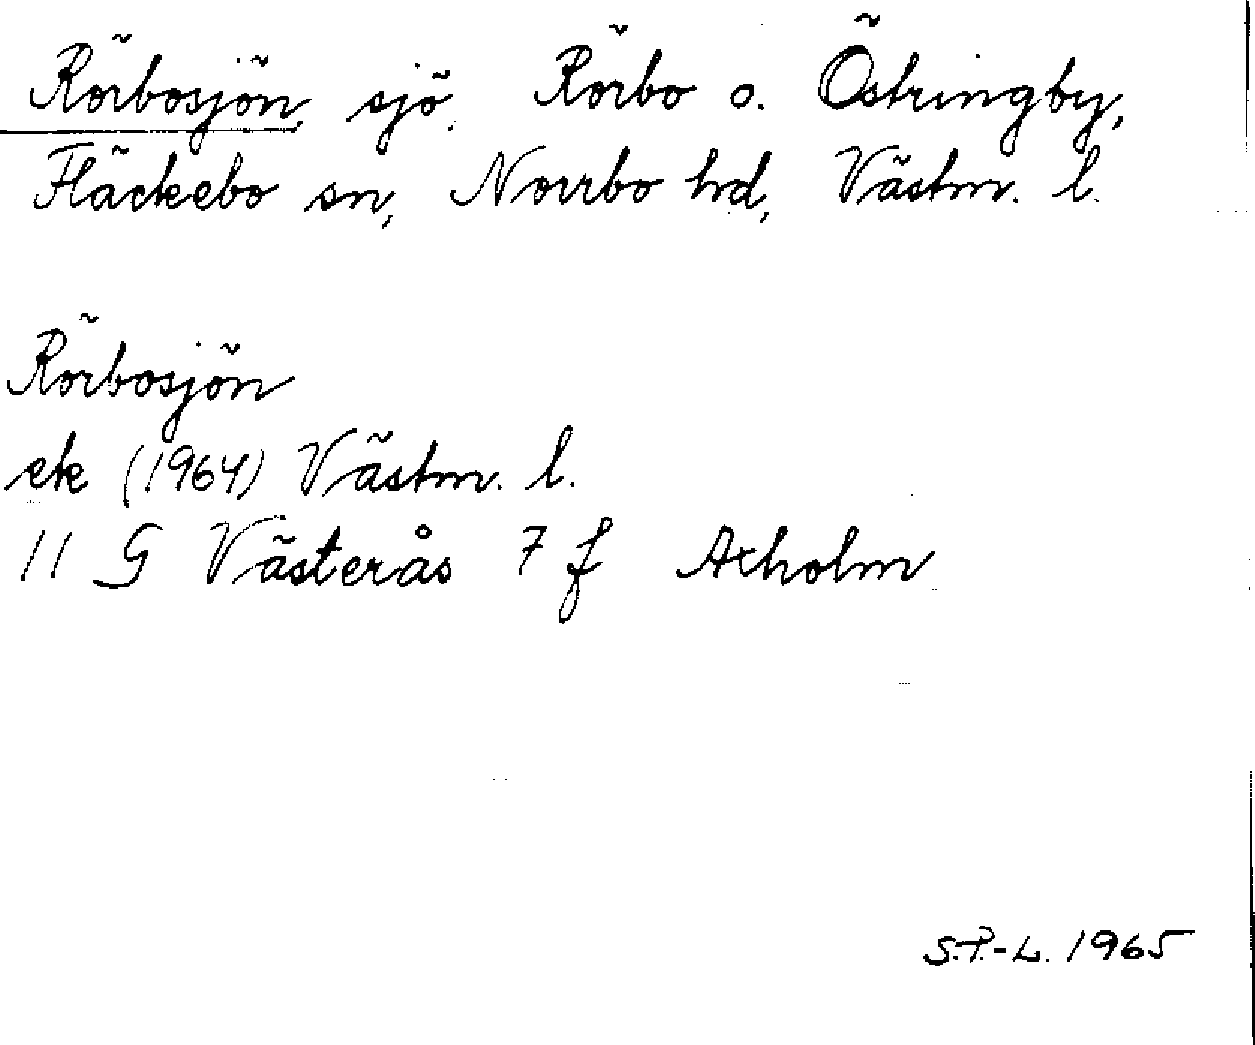 Rörbosjön, sjö. Rörbo o. Östringby,
Fläckebo sn, Norrbo hd, Västm. l.
Rörbosjön
ek (1964) Västm. l.
11 G Västerås 7 f Axholm
S.P.-L. 1965